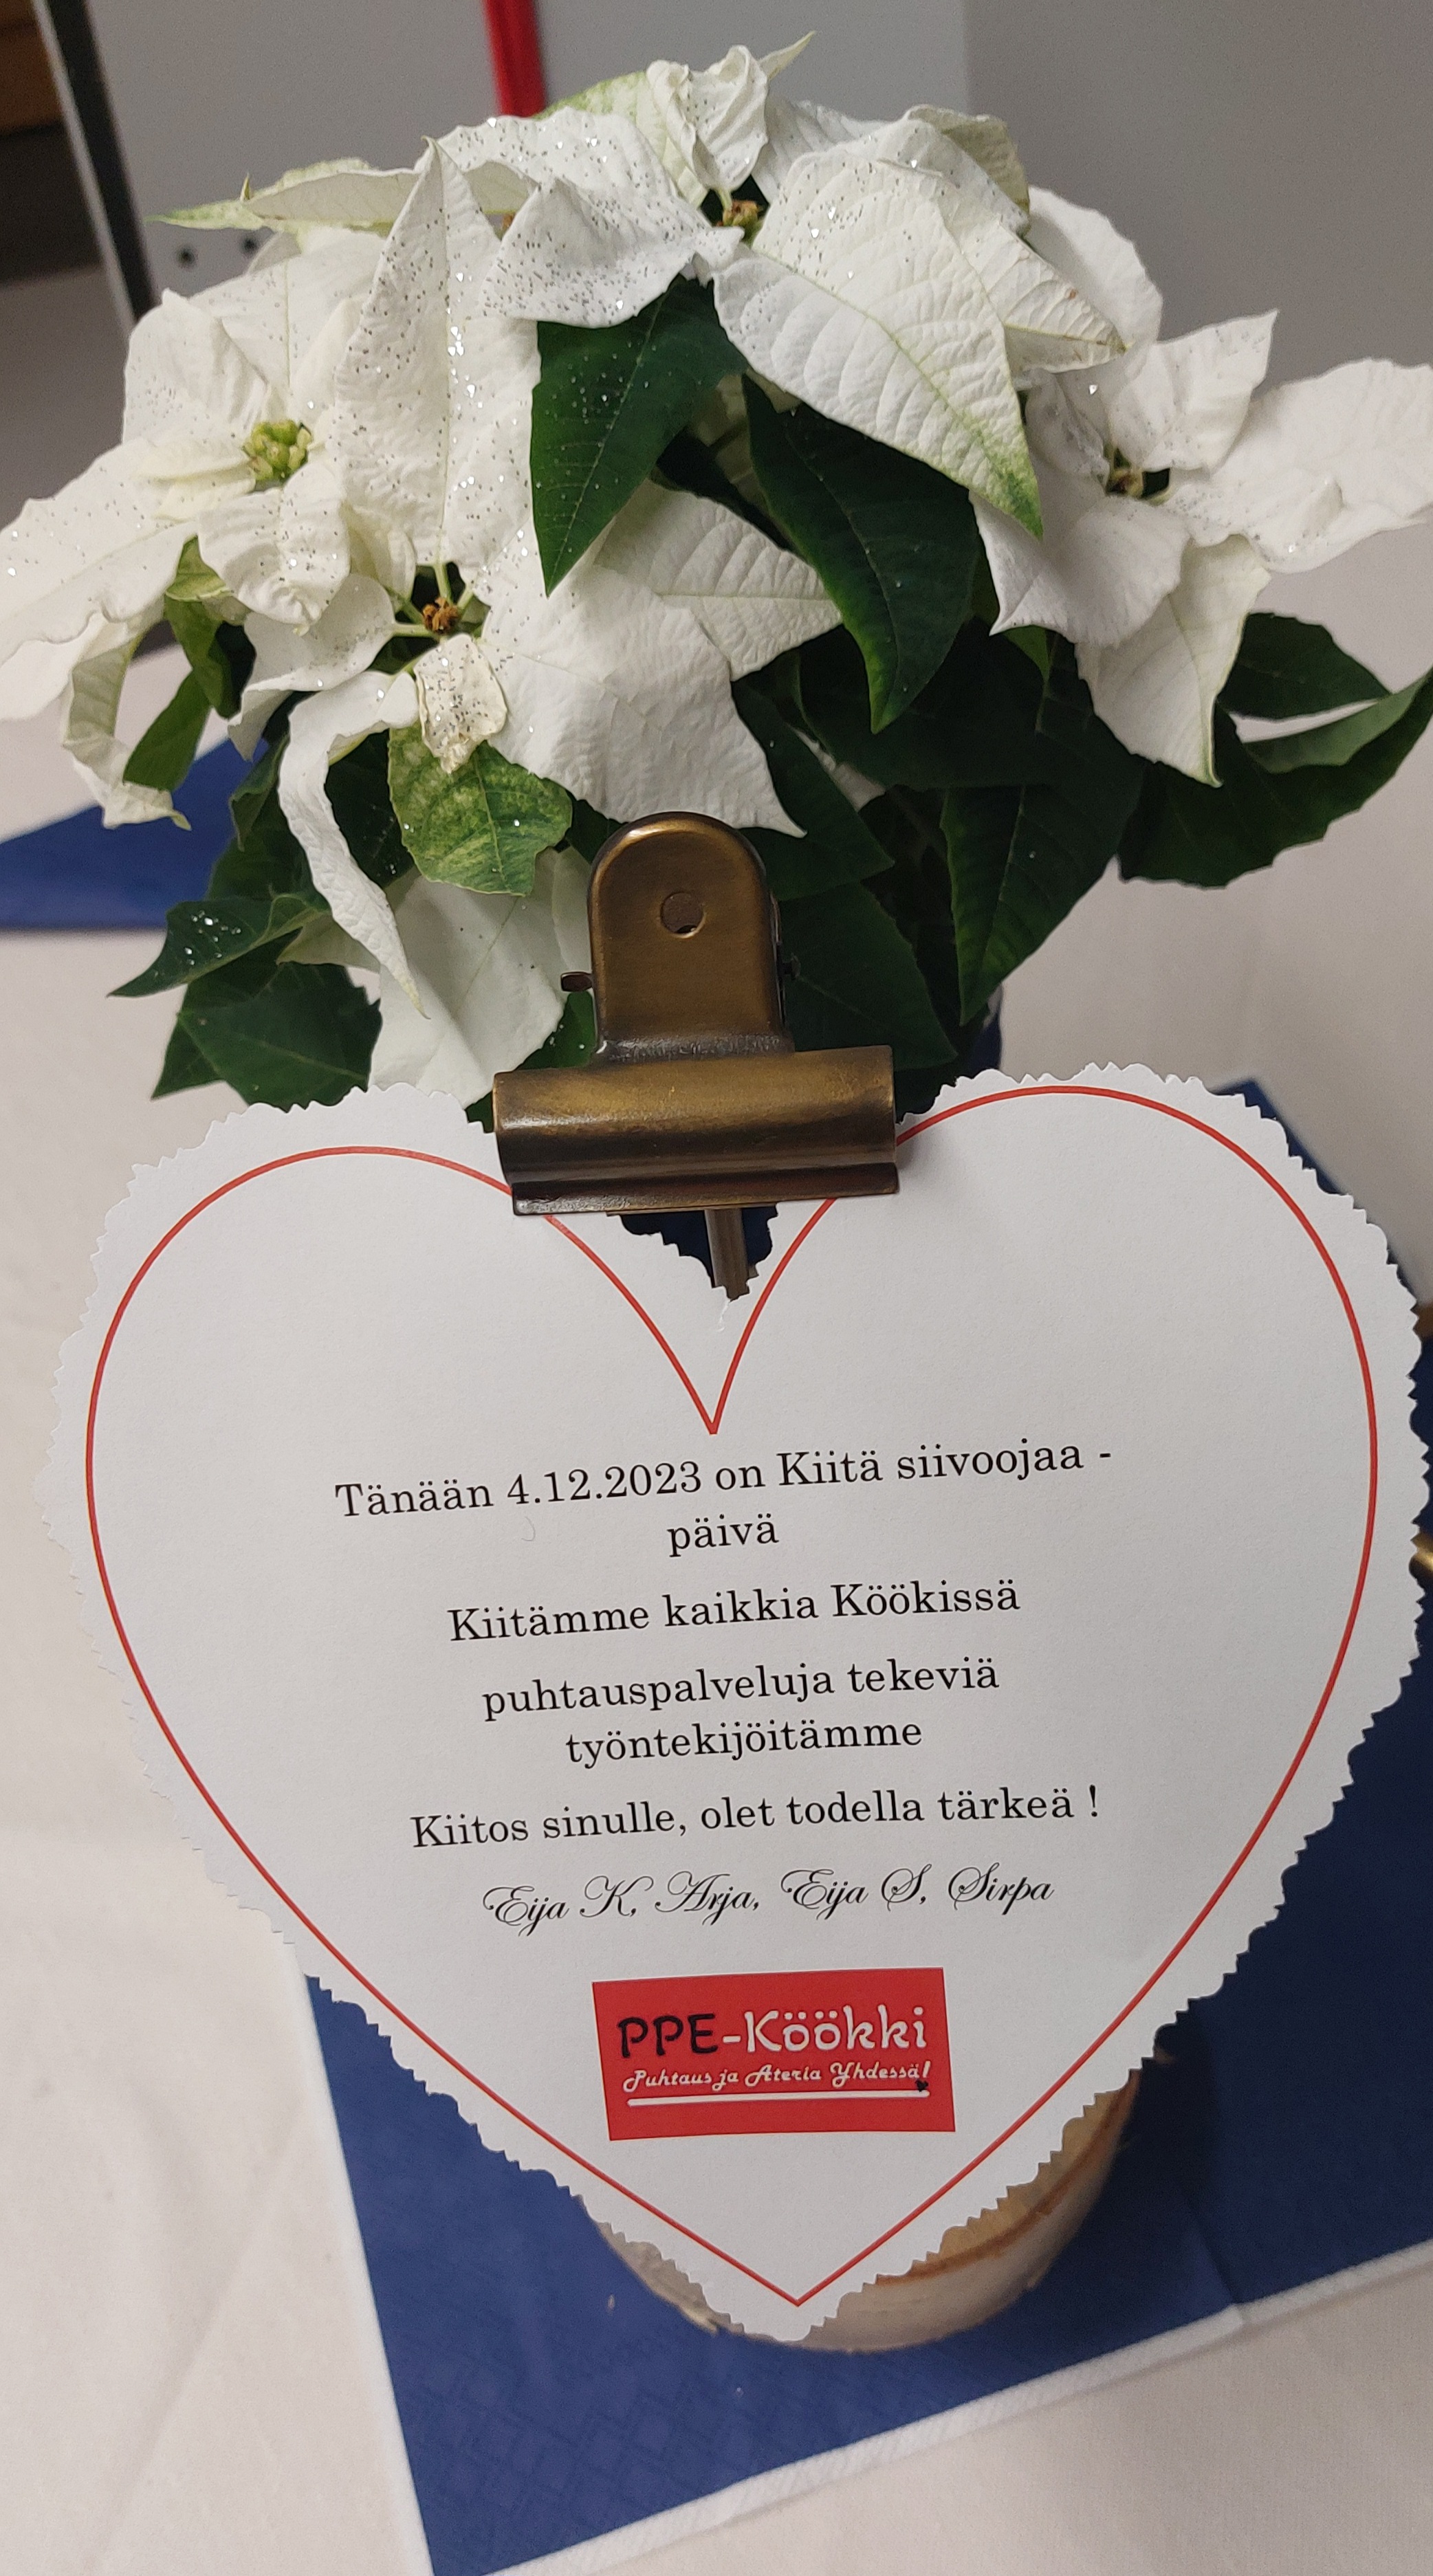 Tänään 4.12.2023 on Kiitä siivoojaa -
päivä
Kiitämme kaikkia Köökissä
puhtauspalveluja tekeviä
työntekijöitämme
Kiitos sinulle, olet todella tärkeä !
Eija K, Arja, Eija S, Sirpa
PPE-Köökki
Puhtaus ja Ateria Yhdessä!